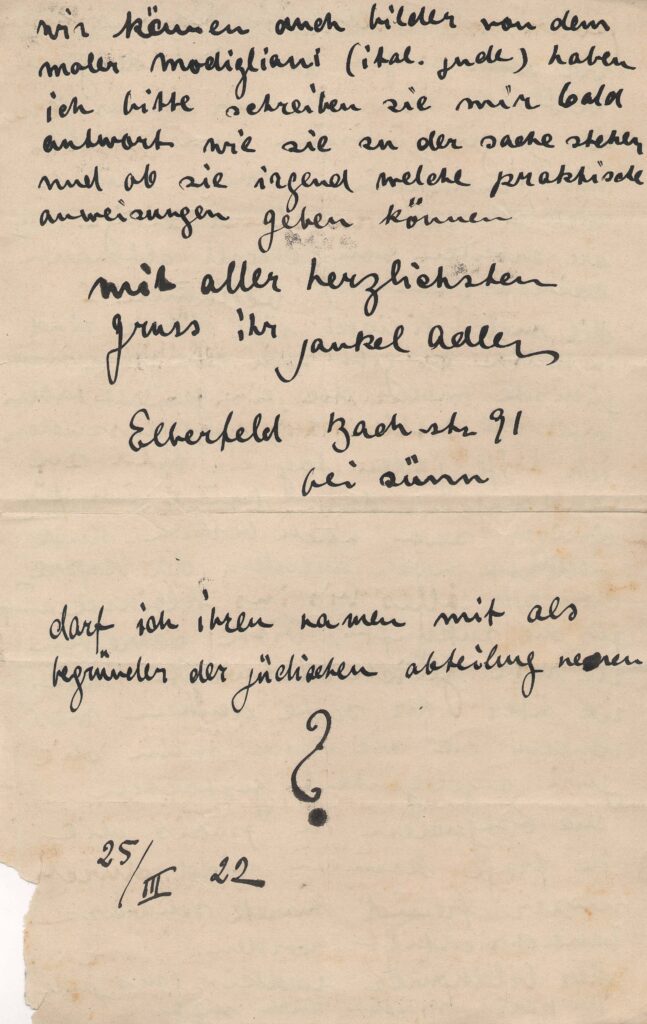 wir können auch bilder von dem
maler modigliani (ital. jude) haben
ich bitte schreiben sie mir bald
antwort wie sie zu der sache stehen
und ob sie irgend welche praktische
anweisungen geben können
mit aller herzlichsten
gruss ihr jankel adler
Elberfeld Bach-str 91
bei sünn
darf ich ihren namen mit als
begründer der jüdischen abteilung nennen
?
25/III 22